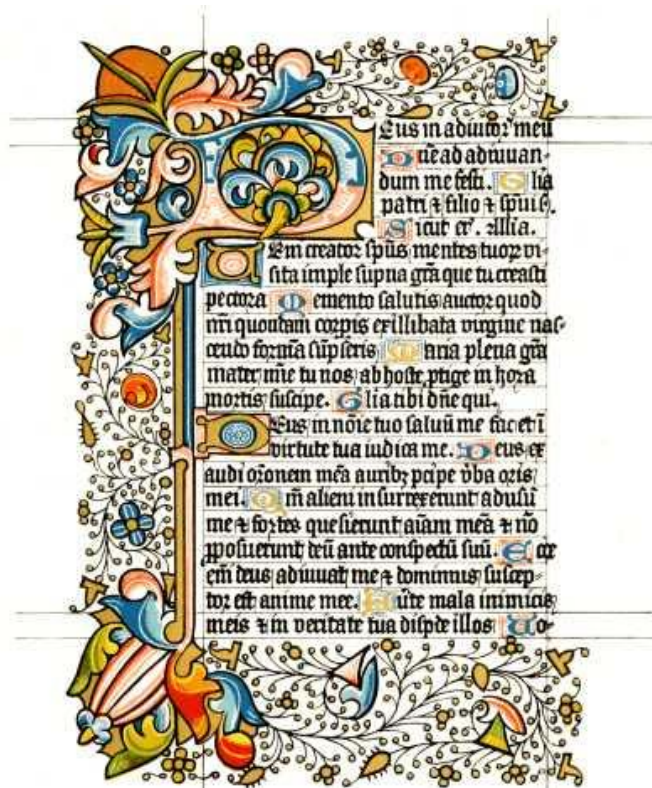 Deus in adiutor' meū
Dñe ad adiuuan-
dum me festī. Glia
patri ⁊ filio ⁊ spūi s.
Sicut er'. Allia.
Uem creator spūs mentes tuoꝝ vi
sita imple supna gr̄a que tu creasti
pectora Memento salutis auctor quod
nr̄i quondam corpis ex illibata virgine nas-
cendo formā sūpseris Maria plena gr̄a
mater mīe tu nos ab hoste ptige in hora
mortis suscipe. Glia tibi dñe qui.
Deus in nōie tuo saluū me fac et ī
virtute tua iudica me. Deus ex
audi orōnem meā auribꝫ pcipe v̄ba oris
mei. Qm̄ alieni insurrexerunt adūsū
me ⁊ fortes quesierunt aīam meā ⁊ nō
pposuerunt deū ante conspectū suū. Ecce
em̄ deus adiuuat me ⁊ dominus suscep-
tor est anime mee. Auīte mala inimicis
meis ⁊ in veritate tua dispde illos Uo-